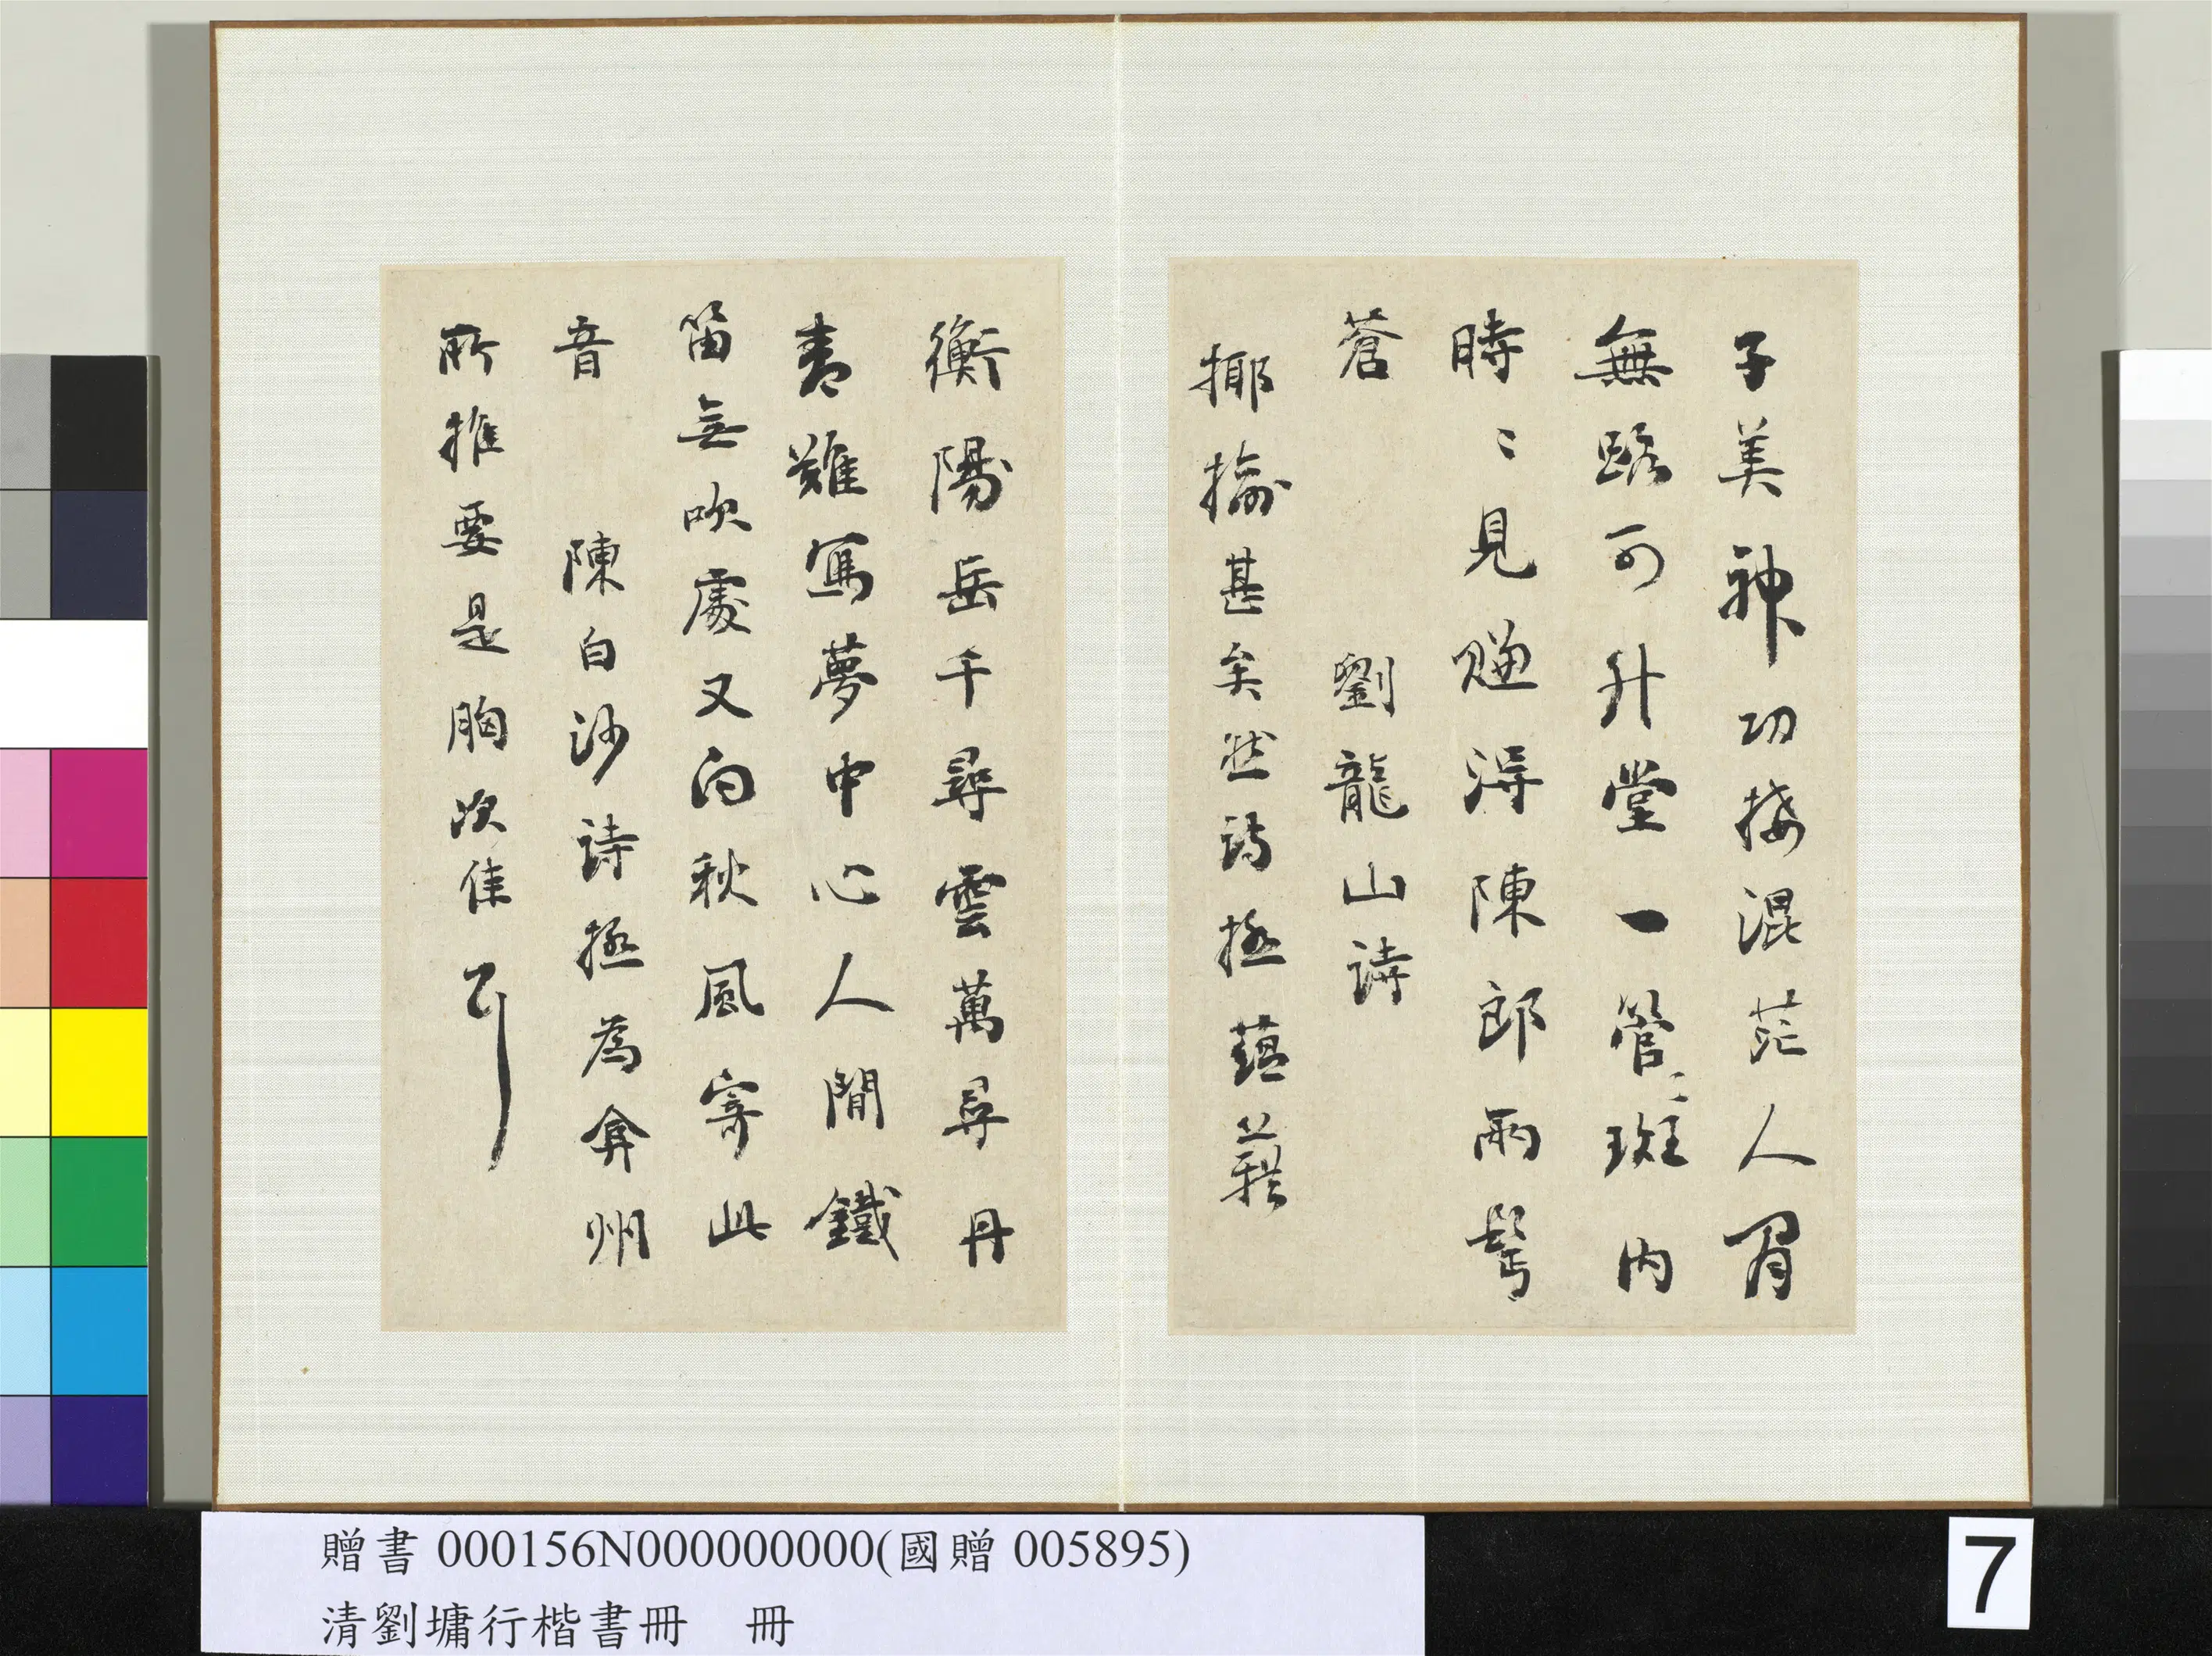 子美神功接混茫人間
無路可升堂一管管斑內
時〻見賺得陳郎兩鬢
蒼　劉龍山詩
揶揄甚矣然詩極蘊藉
衡陽岳千尋雲萬尋丹
青難寫夢中心人間鐵
笛無吹處又向秋風寄此
音　陳白沙詩極為弇州
所推要是胸次佳耳
贈書 000156N000000000(國贈 005895)
清劉墉行楷書冊　冊
7